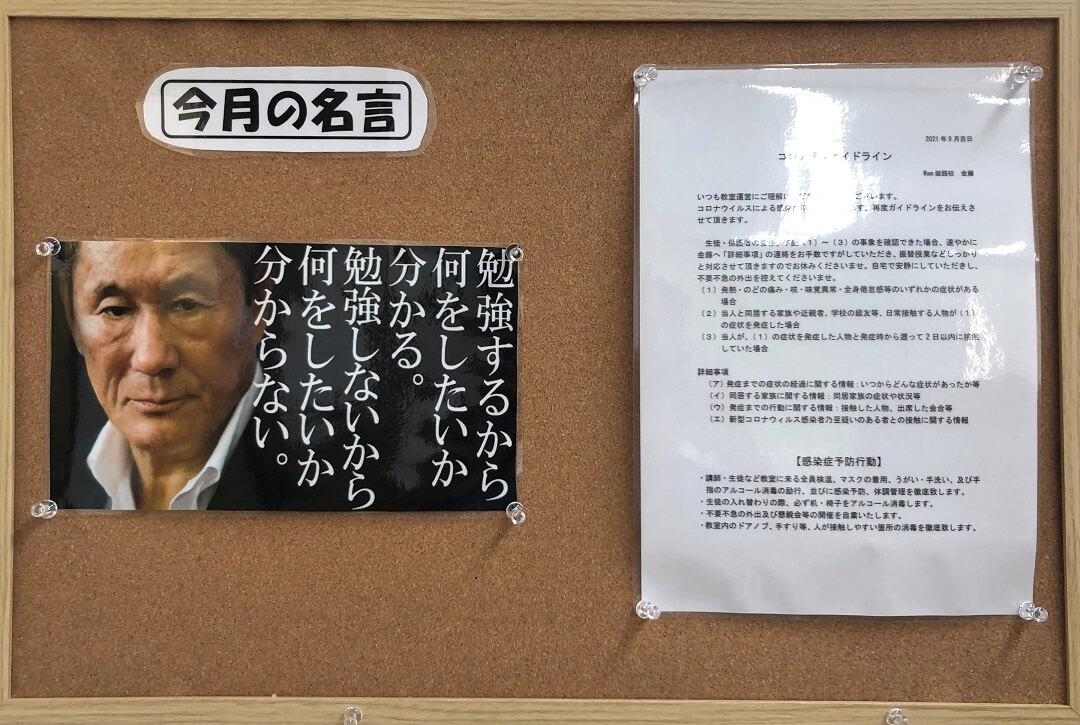 今月の名言
勉強するから
何をしたいか
分かる。
勉強しないから
何をしたいか
分からない。
2021年9月吉日
コロナ イドライン
Wam姫路校 金藤
いつも教室運営にご理解い ざいます。
コロナウイルスによる感染 す。再度ガイドラインをお伝えさ
せて頂きます。
生徒・保護者の (1)～(3)の事象を確認できた場合、速やかに
金藤へ「詳細事項」の連絡をお手数ですがしていただき、振替授業などしっかり
と対応させて頂きますのでお休みくださいませ。自宅で安静にしていただきし、
不要不急の外出を控えてくださいませ。
(1)発熱・のどの痛み・咳・味覚異常・全身倦怠感等のいずれかの症状がある
場合
(2)当人と同居する家族や近親者、学校の級友等、日常接触する人物が(1)
の症状を発症した場合
(3)当人が、(1)の症状を発症した人物と発症時から遡って2日以内に接触
していた場合
詳細事項
(ア)発症までの症状の経過に関する情報：いつからどんな症状があったか等
(イ)同居する家族に関する情報：同居家族の症状や状況等
(ウ)発症までの行動に関する情報：接触した人物、出席した会合等
(エ)新型コロナウィルス感染者乃至疑いのある者との接触に関する情報
【感染症予防行動】
・講師・生徒など教室に来る全員検温、マスクの着用、うがい・手洗い、及び手
指のアルコール消毒の励行、並びに感染予防、体調管理を徹底致します。
・生徒の入れ替わりの際、必ず机・椅子をアルコール消毒します。
・不要不急の外出及び懇親会等の開催を自粛いたします。
・教室内のドアノブ、手すり等、人が接触しやすい箇所の消毒を徹底致します。